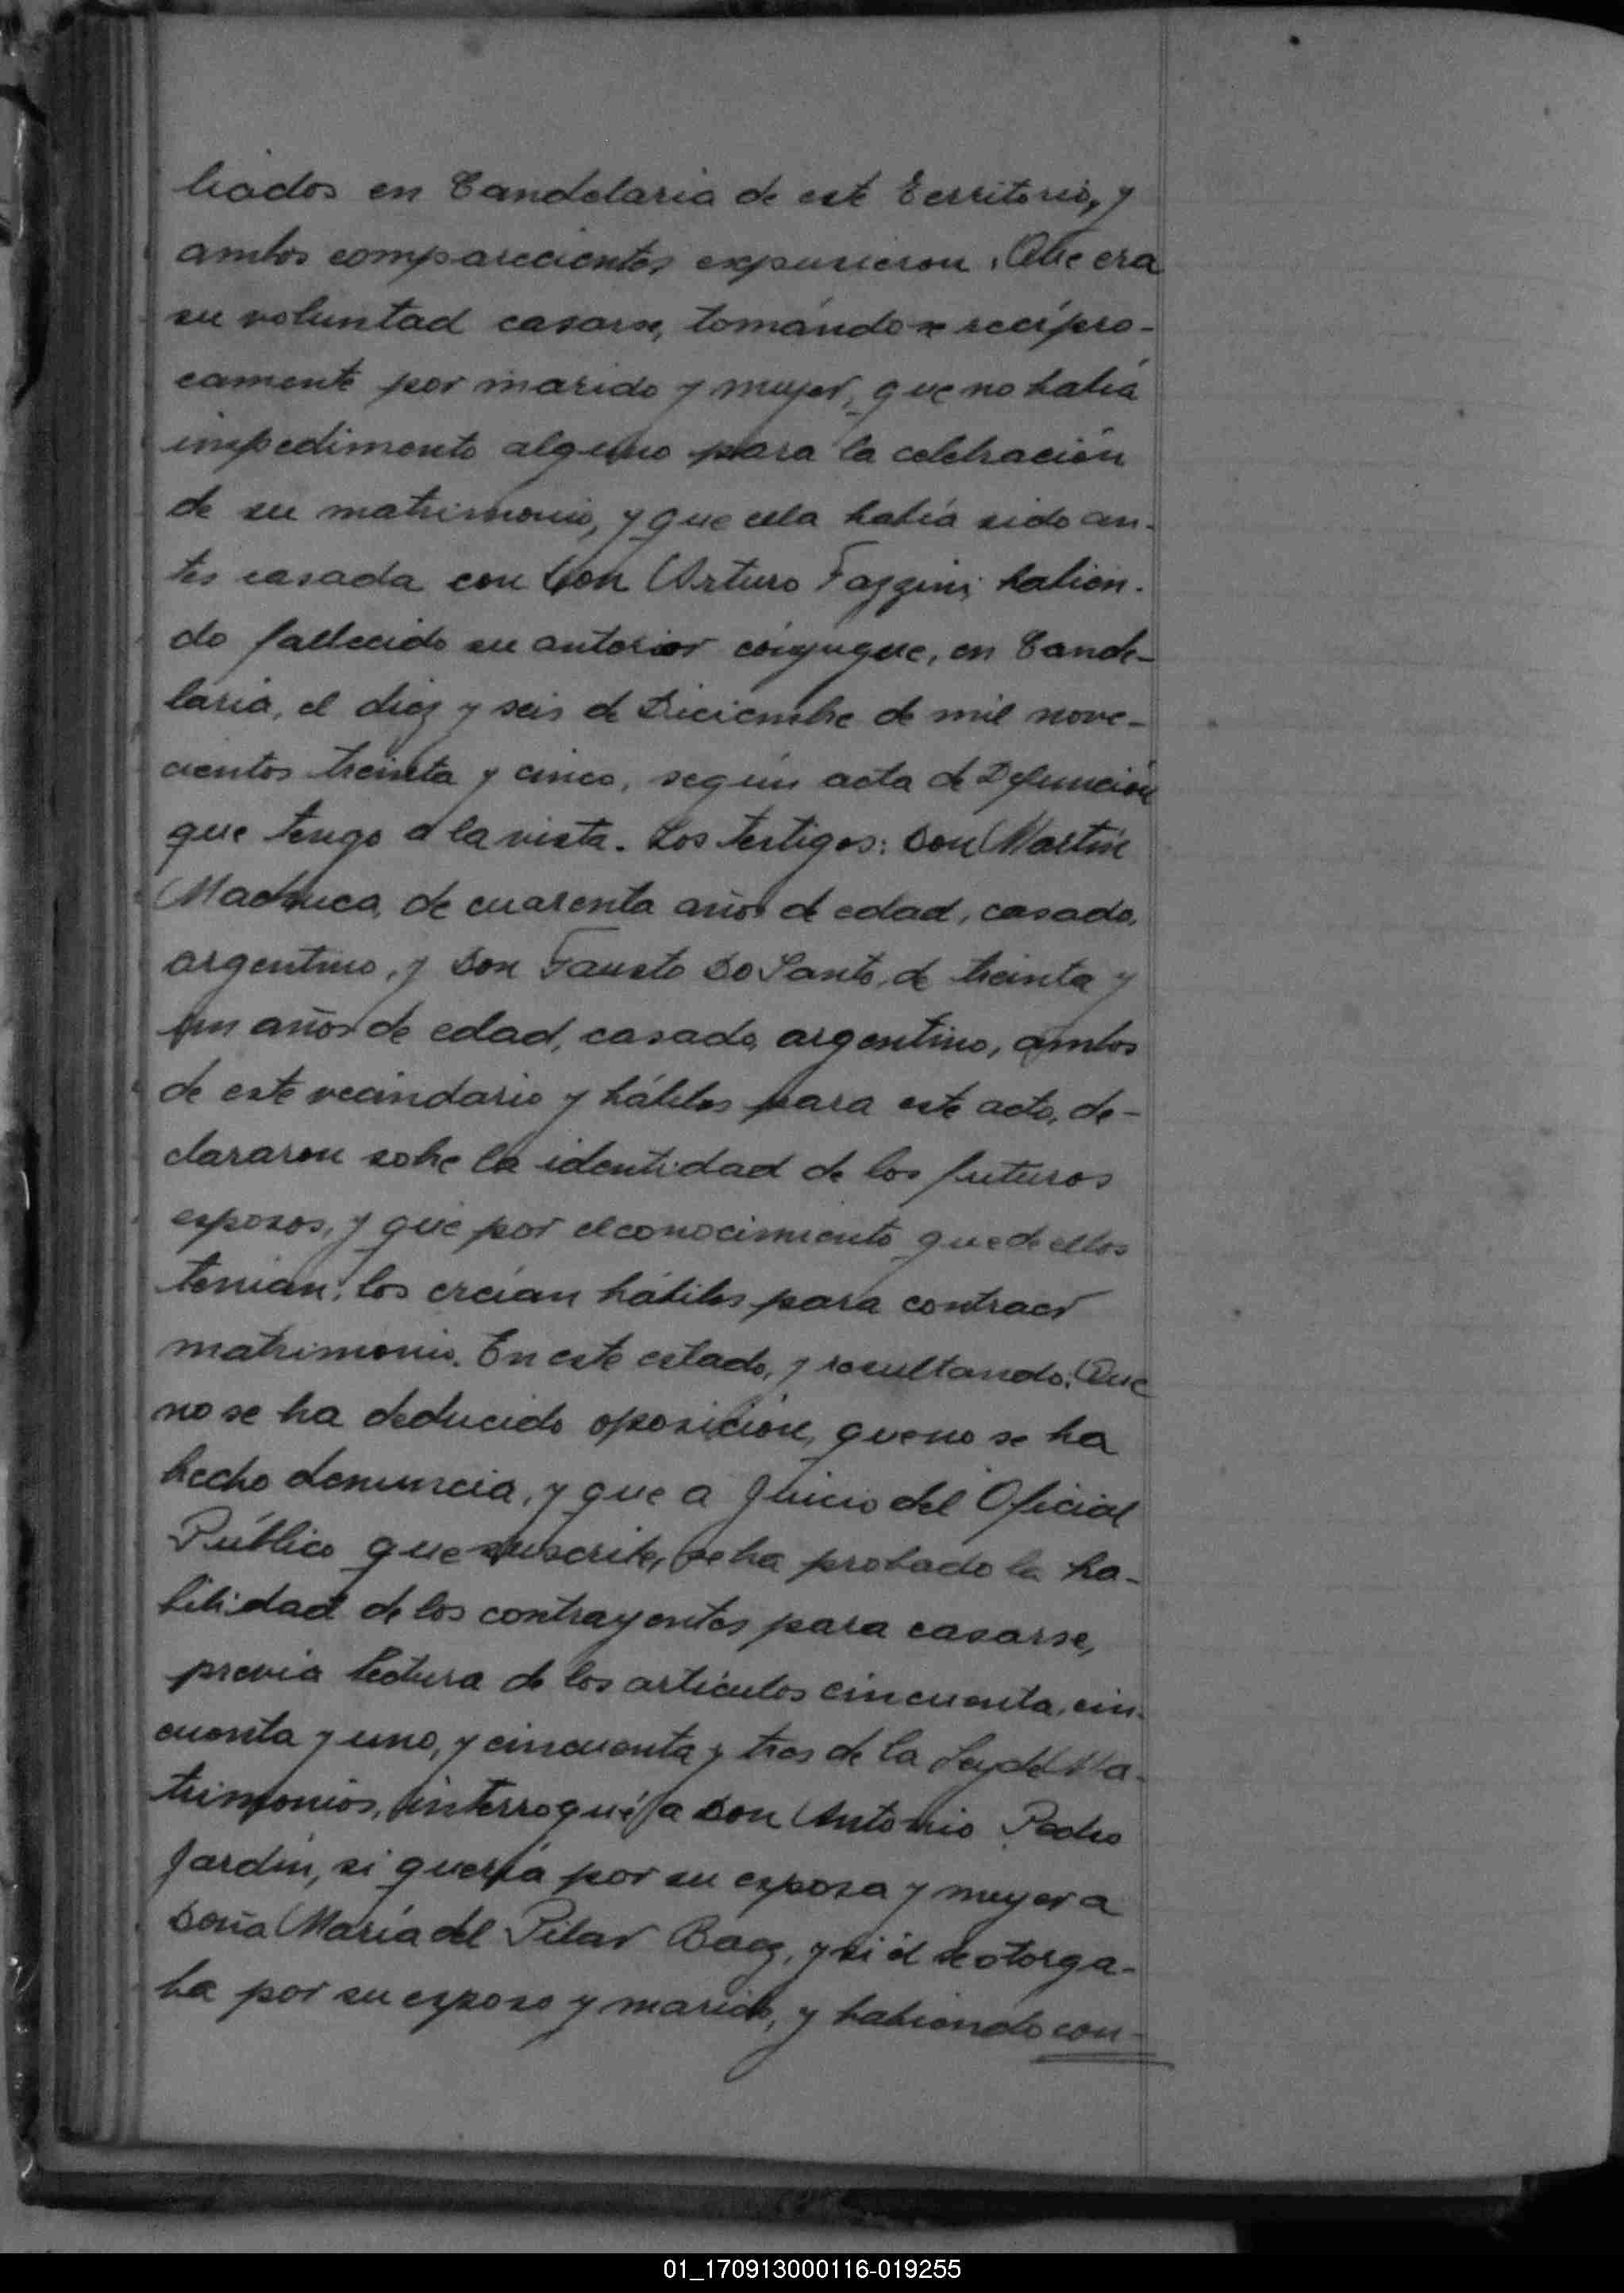 liados en Candelaria de este Territorio, y
ambos comparecientes expusieron: Que era
su voluntad casarse, tomándose recípro-
camente por marido y mujer, que no había
impedimento alguno para la celebración
de su matrimonio, y que ella había sido an-
tes casada con Don Arturo Fazzini, habien-
do fallecido su anterior cónyugue, en Cande-
laria, el diez y seis de Diciembre de mil nove-
cientos treinta y cinco, según acta de Defunción
que tengo a la vista. Los testigos: Don Martín
Machuca, de cuarenta años de edad, casado,
argentino, y Don Fausto Do Santo, de treinta y
un años de edad, casado, argentino, ambos
de este vecindario y hábiles para este acto, de-
clararon sobre la identidad de los futuros
esposos, y que por el conocimiento que de ellos
tenían, los creían hábiles para contraer
matrimonio. En este estado, y resultando: Que
no se ha deducido oposición, que no se ha
hecho denuncia, y que a juicio del Oficial
Público que suscribe, se ha probado la ha-
bilidad de los contrayentes para casarse,
previa lectura de los artículos cincuenta, cin-
cuenta y uno, y cincuenta y tres de la Ley de Ma-
trimonios, interrogué a Don Antonio Pedro
Jardin, si quería por su esposa y mujer a
Doña María del Pilar Baez, y si él se otorga-
ba por su esposo y marido, y habiendo con-
01_170913000116-019255